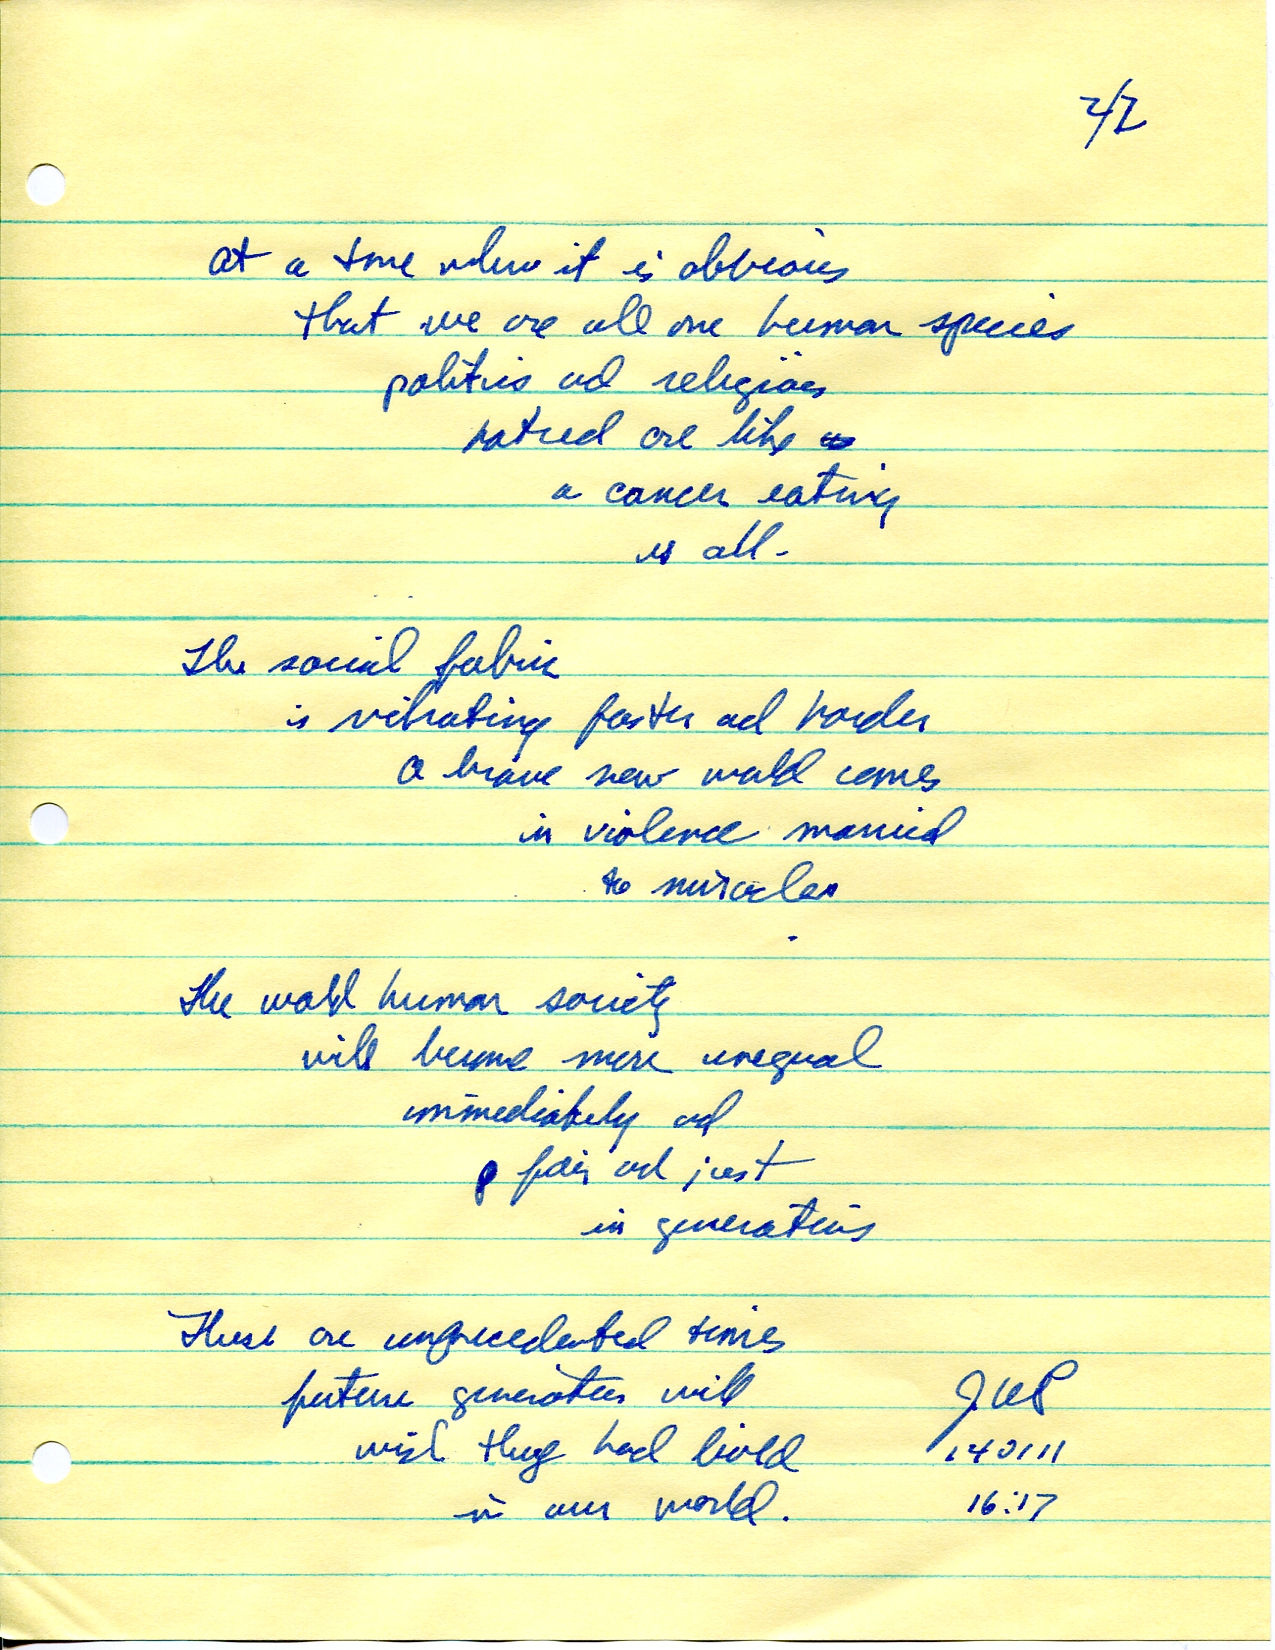 2/2
At a time when it is obvious
that we are all one human species
politics and religious
hatred are like
a cancer eating
us all.
The social fabric
is vibrating faster and harder
A brave new world comes
in violence married
to miracles
The world human society
will become more unequal
immediately and
fair and just
in generations
These are unprecedented times
future generations will
wish they had lived
in our world.
JWP
140111
16:17